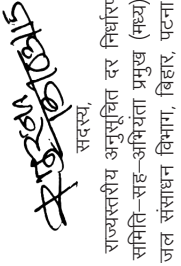 सदस्य,
राज्यस्तरीय अनुसूचित दर निर्धारण
समिति–सह–अभियंता प्रमुख (मध्य)
जल संसाधन विभाग, बिहार, पटना